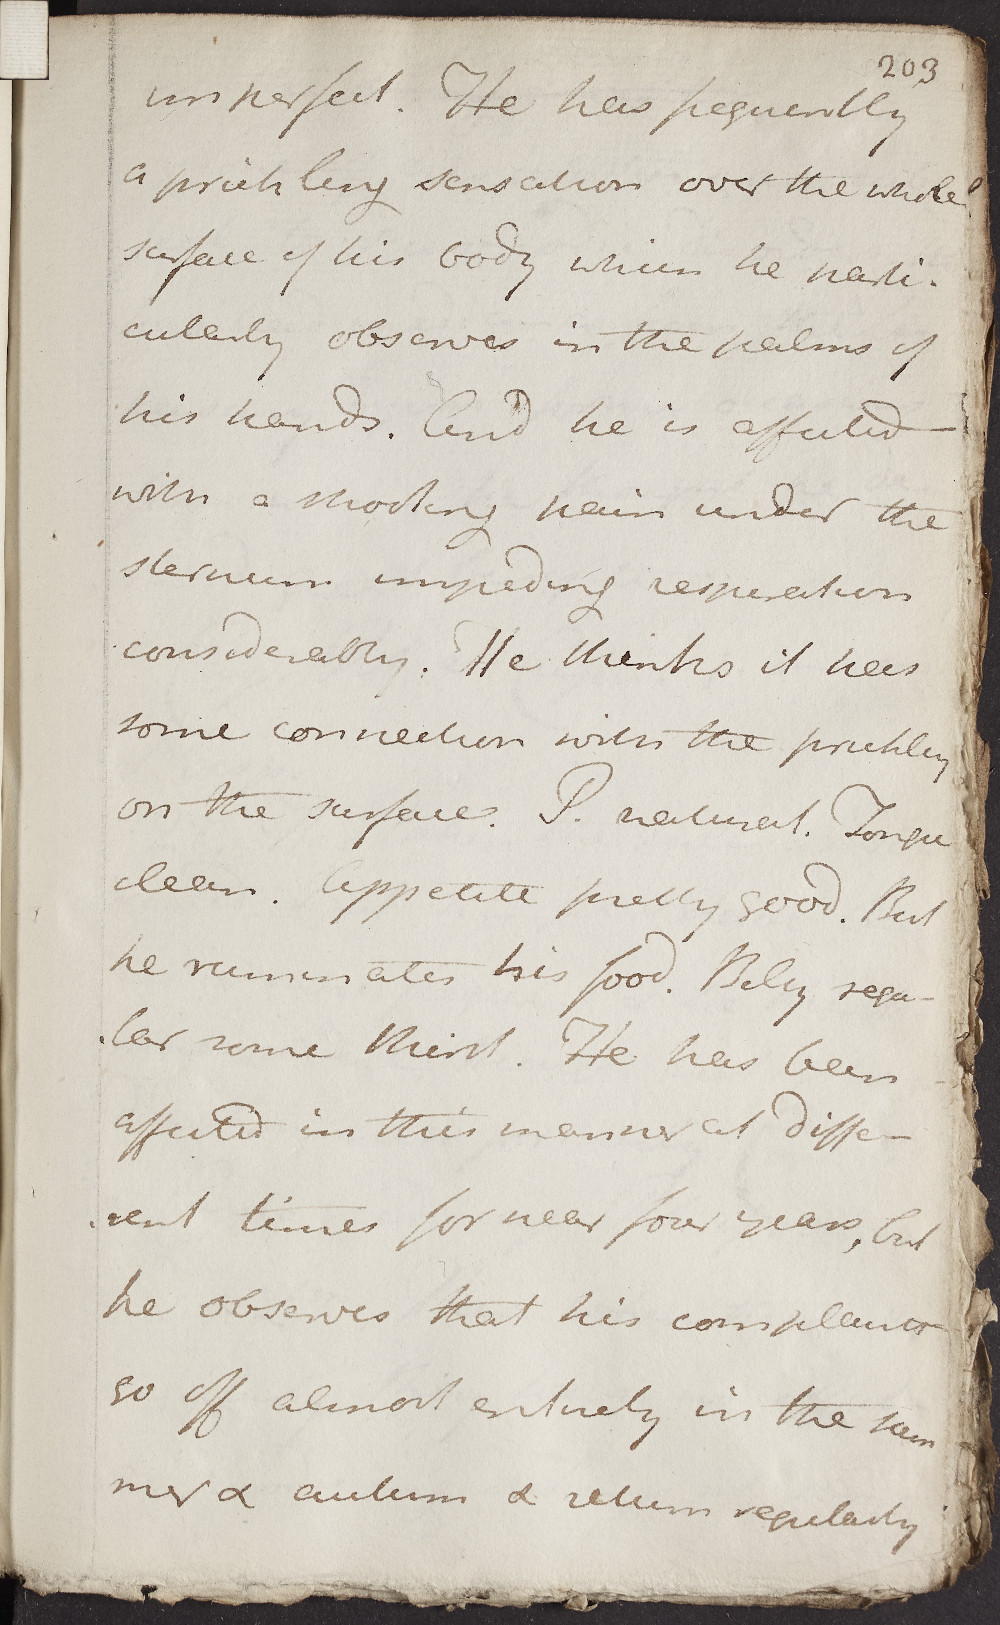 203
imperfect. He has frequently
a prickling sensation over the whole
surface of his body which he parti-
cularly observes in the palms of
his hands. And he is affected
with a shooting pain under the
sternum impeding respiration
considerably. He thinks it has
some connection with the prickling
on the surface. P. natural. Tongue
clean. Appetite pretty good. But
he ruminates his food. Belly regu-
lar some thirst. He has been
affected in this manner at diffe-
rent times for near four years, but
he observes that his complaints
go off almost entirely in the sum
mer & autum & return regularly